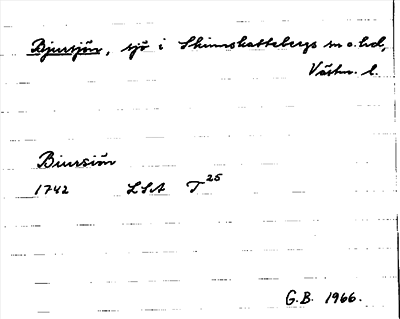 Bjursjön, sjö i Skinnskattebergs sn o. hd,
Västm. l.
Biursiön
1742 LSA T 25
G.B. 1966.